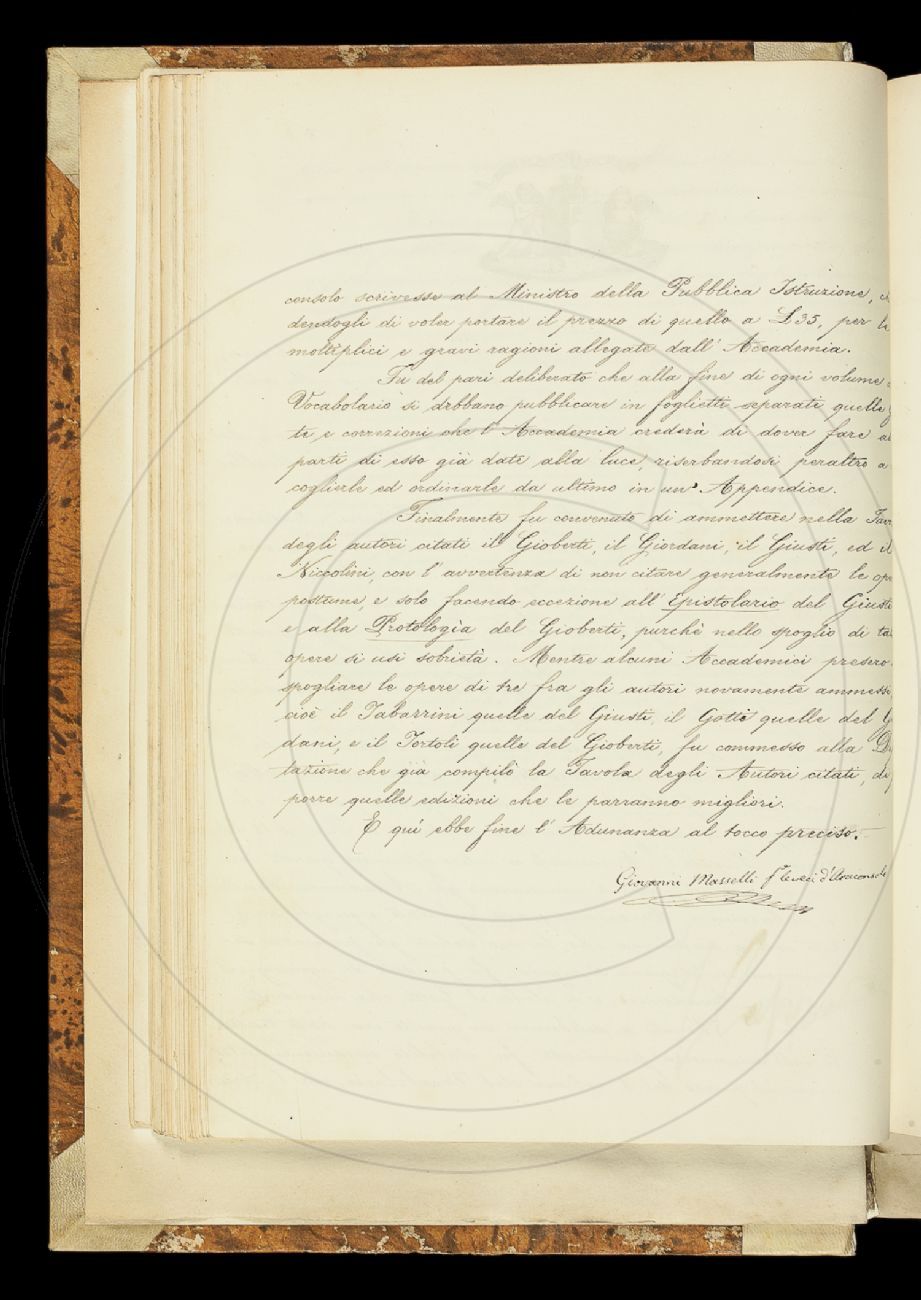 consolo scrivesse al Ministro della Pubblica Istruzione,
dendogli di voler portare il prezzo di quello a £35, per le
moltiplici e gravi ragioni allegate dall' Accademia.
Fu del pari deliberato che alla fine di ogni volume
Vocabolario si debbano pubblicare in foglietti separati quelle
te e correzioni che l' Accademia crederà di dover fare
parti di esso già date alla luce, riserbandosi peraltro a
coglierle ed ordinarle da ultimo in un' Appendice.
Finalmente fu convenuto di ammettere nella Tav
degli autori citati il Gioberti, il Giordani, il Giusti, ed il
Niccolini, con l' avvertenza di non citare generalmente le ope
postume, e solo facendo eccezione all' Epistolario del Giusti
e alla Protologia del Gioberti, purchè nello spoglio di ta
opere si usi sobrietà. Mentre alcuni Accademici presero
spogliare le opere di tre fra gli autori novamente ammessi,
cioè il Tabarrini quelle del Giusti, il Gotti quelle del G
dani, e il Tortoli quelle del Gioberti, fu commesso alla De
tazione che già compilò la Tavola degli Autori citati, di
porre quelle edizioni che le parranno migliori.
E qui ebbe fine l' Adunanza al tocco preciso.
Giovanni Masselli f. le veci d'Arciconsolo